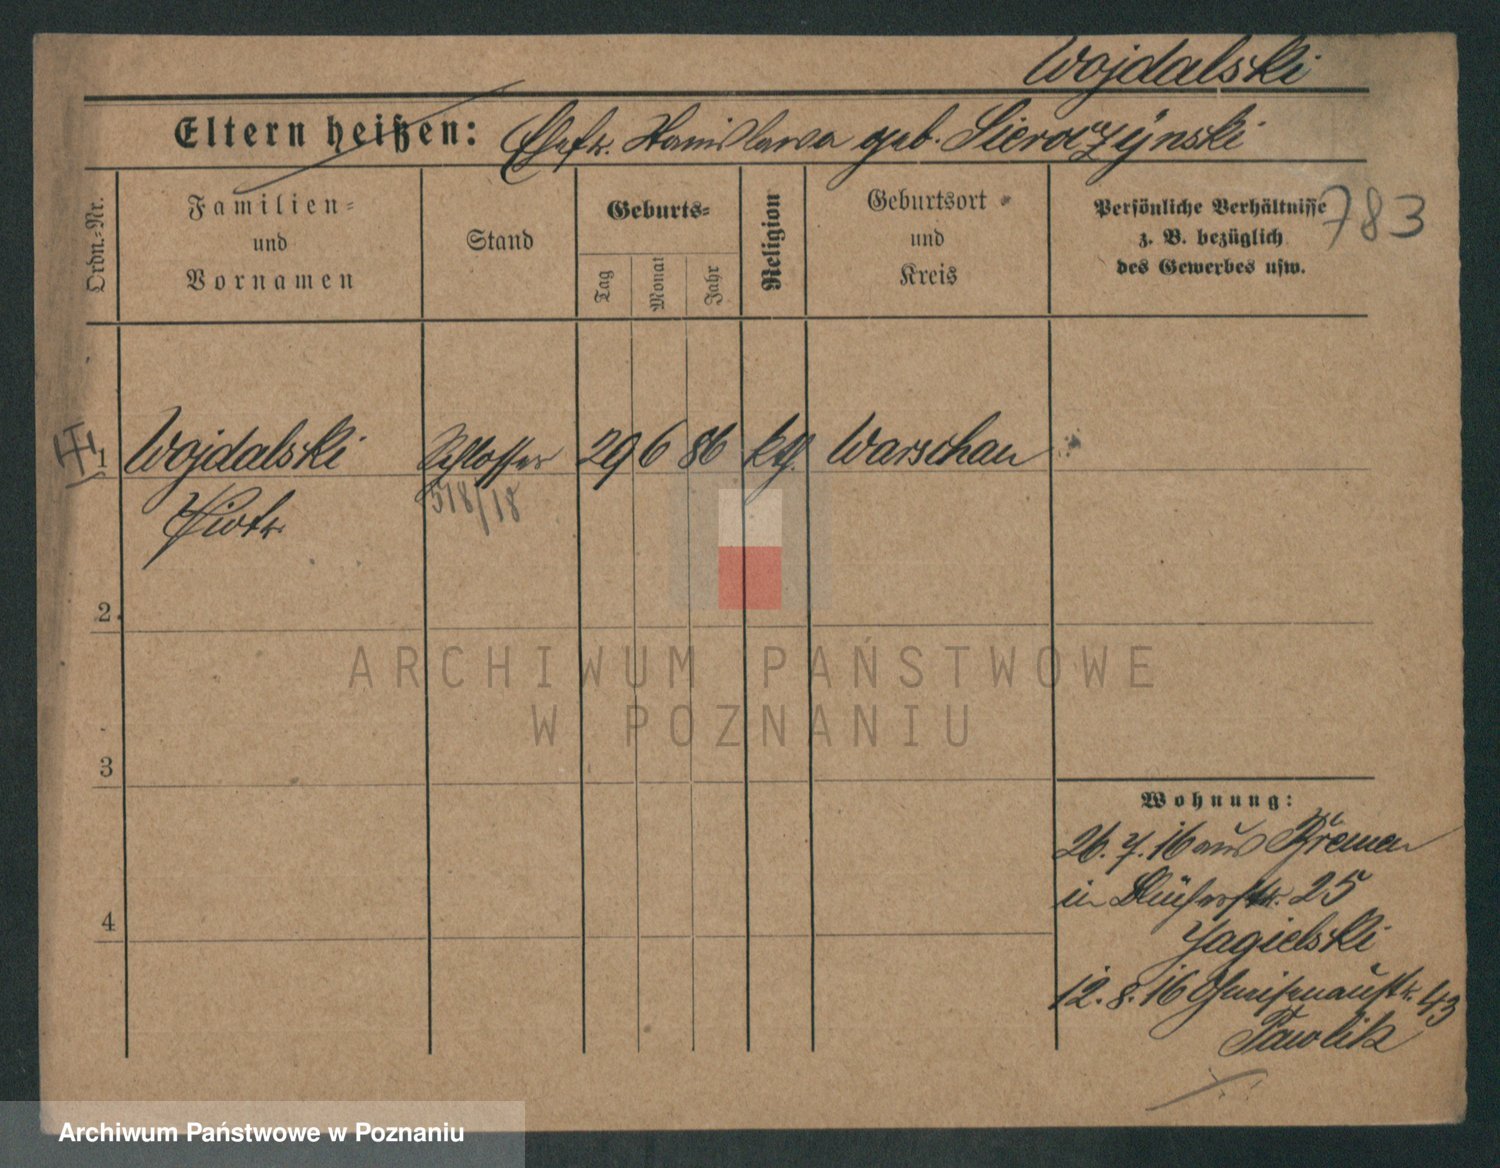 Wojdalski
Eltern heißen: Ehefr. Stanislawa geb. Sieroczynski
Ordn.-Nr.
Familien-
und
Vornamen
Stand
Geburts-
Tag
Monat
Jahr
Religion
Geburtsort
und
Kreis
Persönliche Verhältnisse
z. B. bezüglich
des Gewerbes usw.
783
1 Wojdalski Schlosser 29 6 86 kth. Warschau
Piotr
518/18
2.
3
4
Wohnung:
26. 7. 16 aus Bremen
in Blücherstr. 25
Jagielski
12. 8. 16 Gneisenaustr. 43
Pawlik
ARCHIWUM PAŃSTWOWE
W POZNANIU
Archiwum Państwowe w Poznaniu